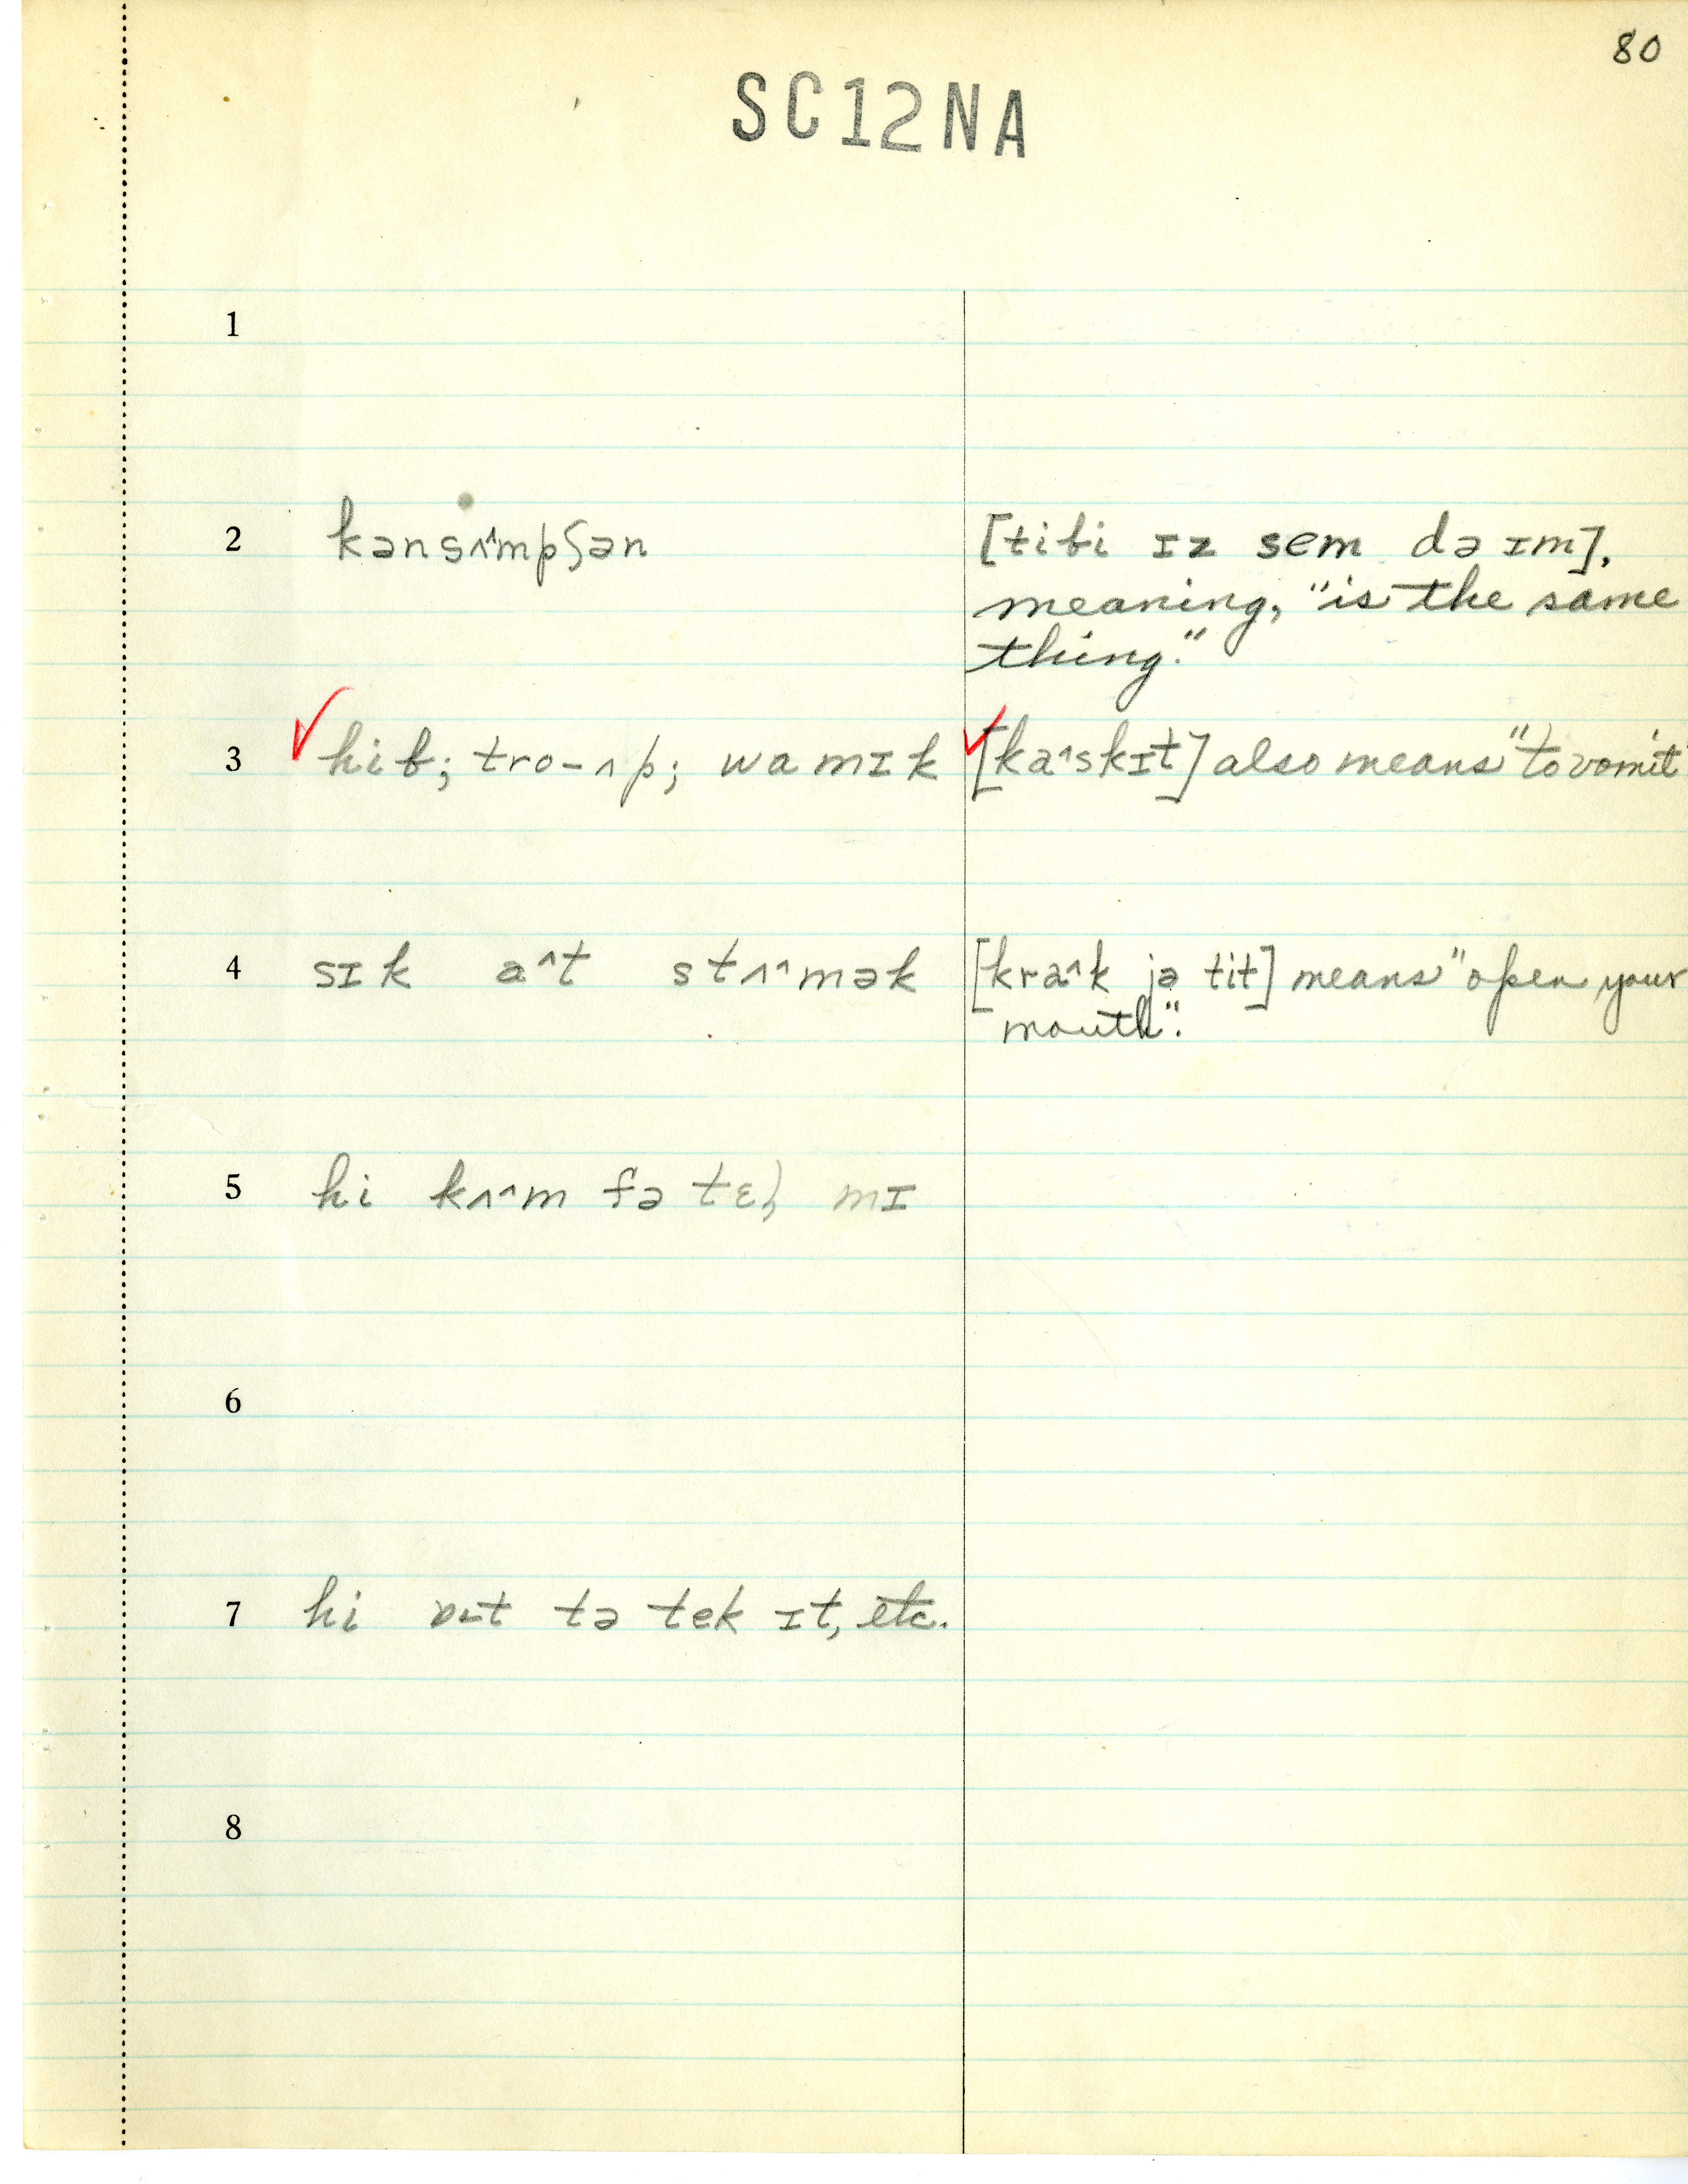 80
SC12NA
1
2 kənsʌ^mpʃən [tibi ɪz sem də ɪm],
meaning, "is the same
thing."
3 ✓ hib; tro-ʌp; wamɪk ✓ [ka^skɪt] also means "to vomit"
4 sɪk a^t stʌ^mək [kra^k jə tit] means "open your
mouth".
5 hi kʌ^m fə tɛl̩ mɪ
6
7 hi tə tek ɪt, etc.
8